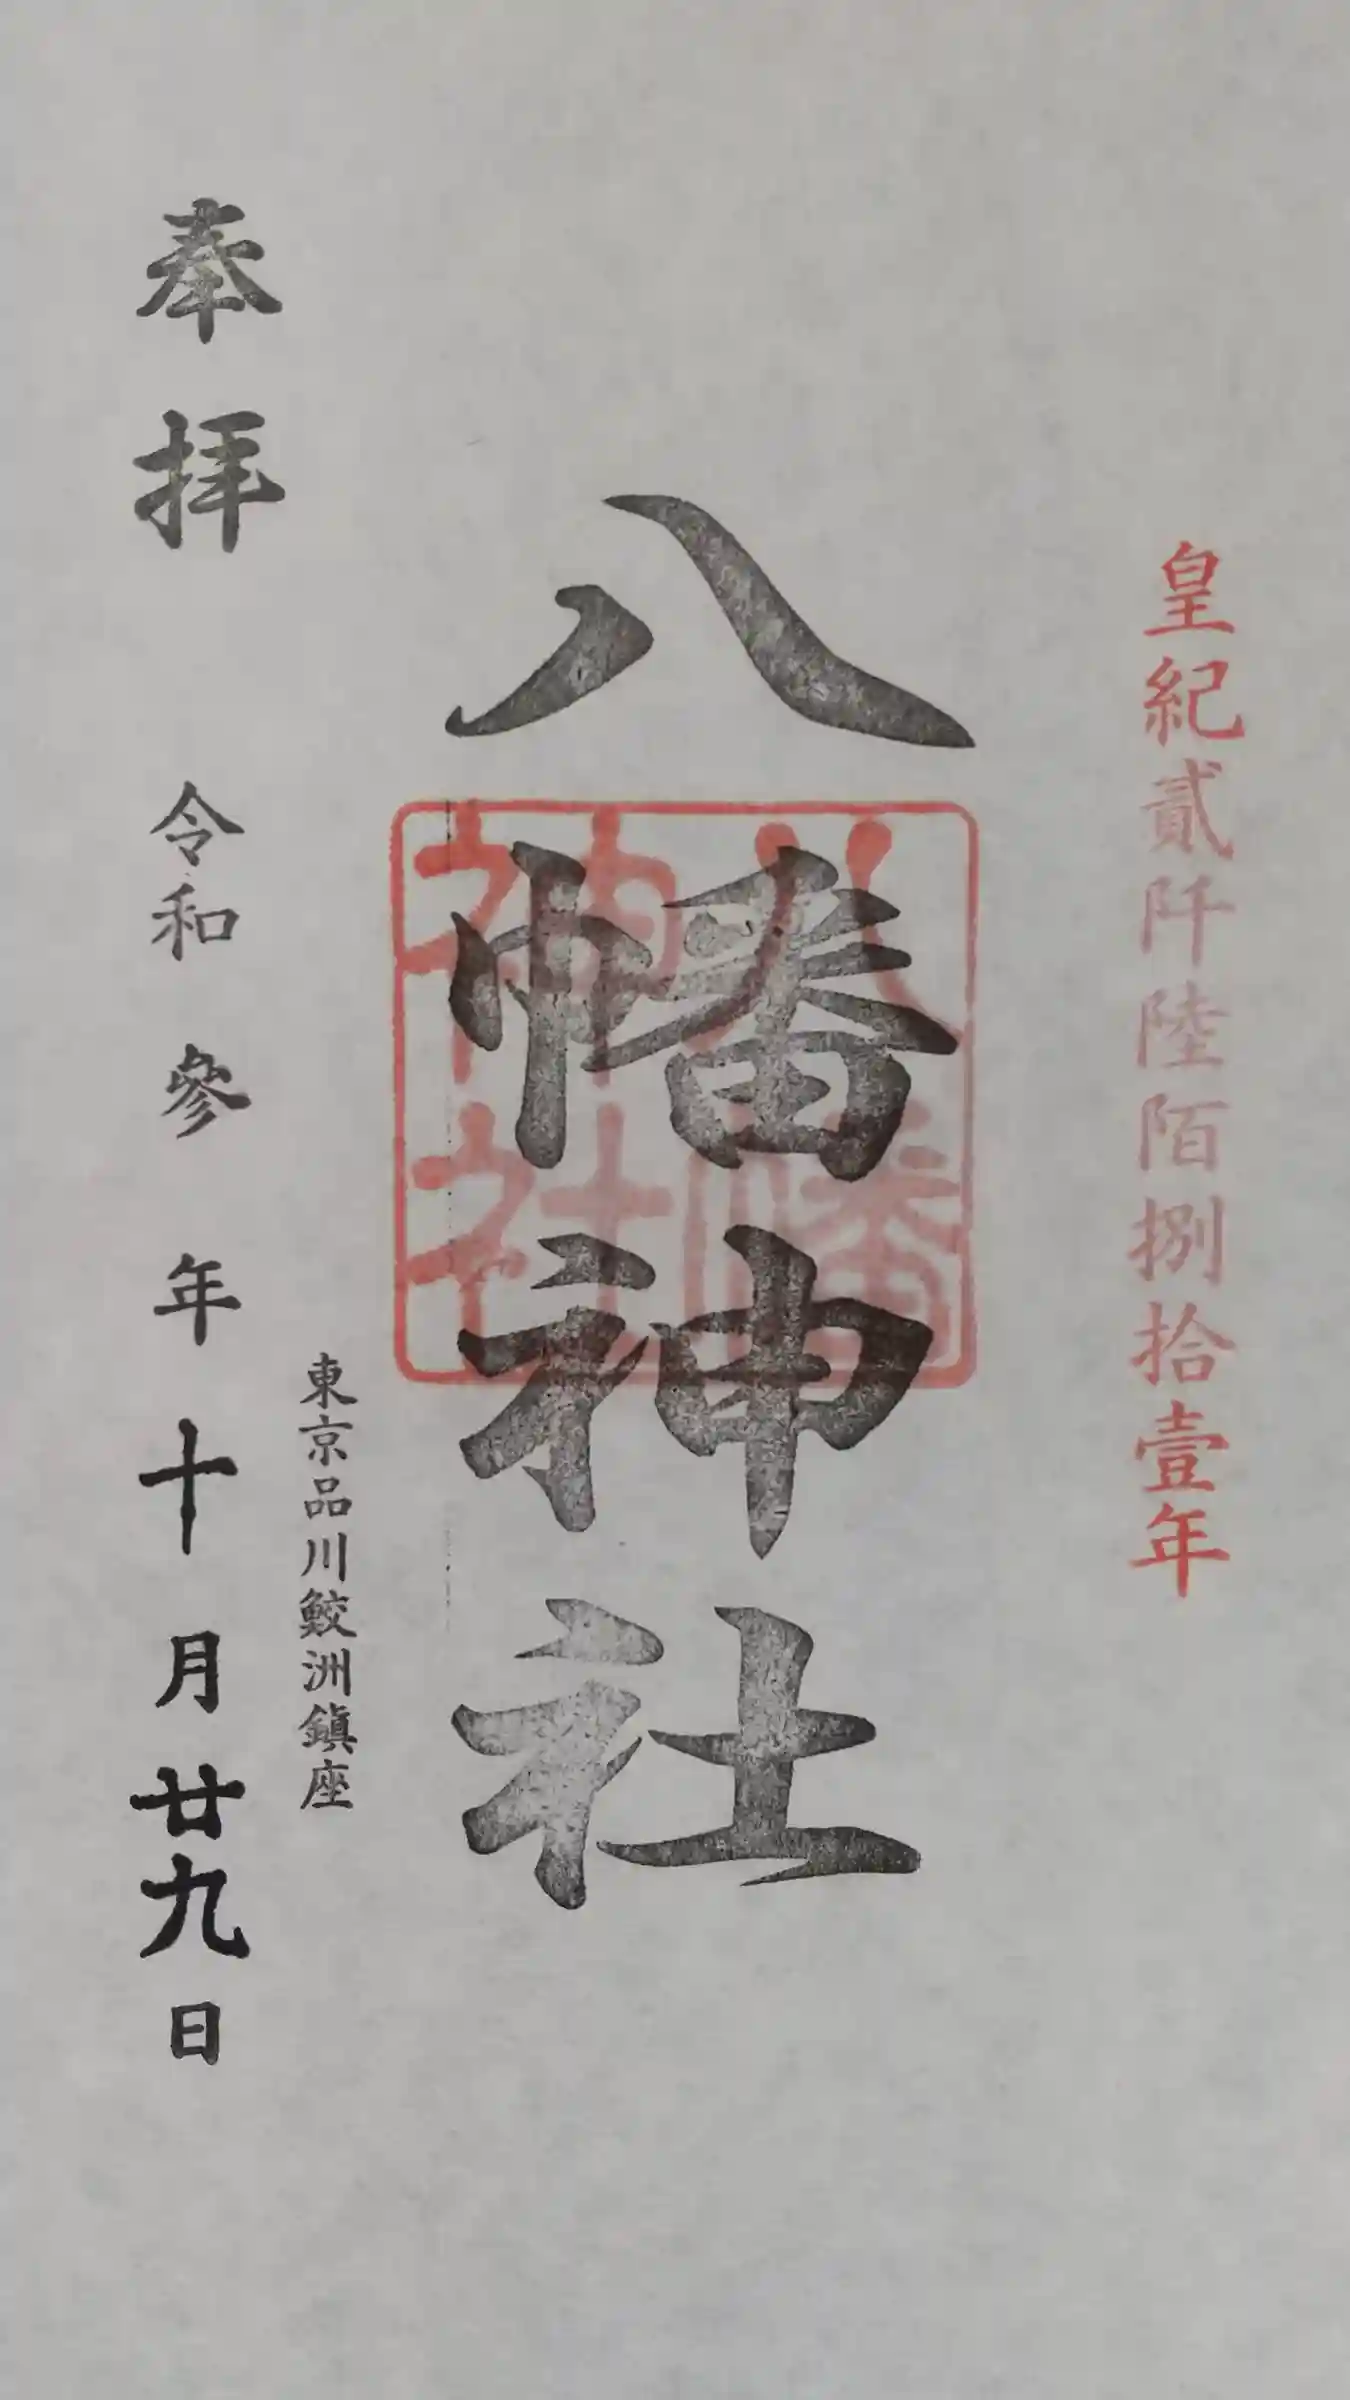 皇紀貳阡陸陌捌拾壹年
八幡神社
八幡
神社
東京品川鮫洲鎭座
奉拝
令和參年十月廿九日